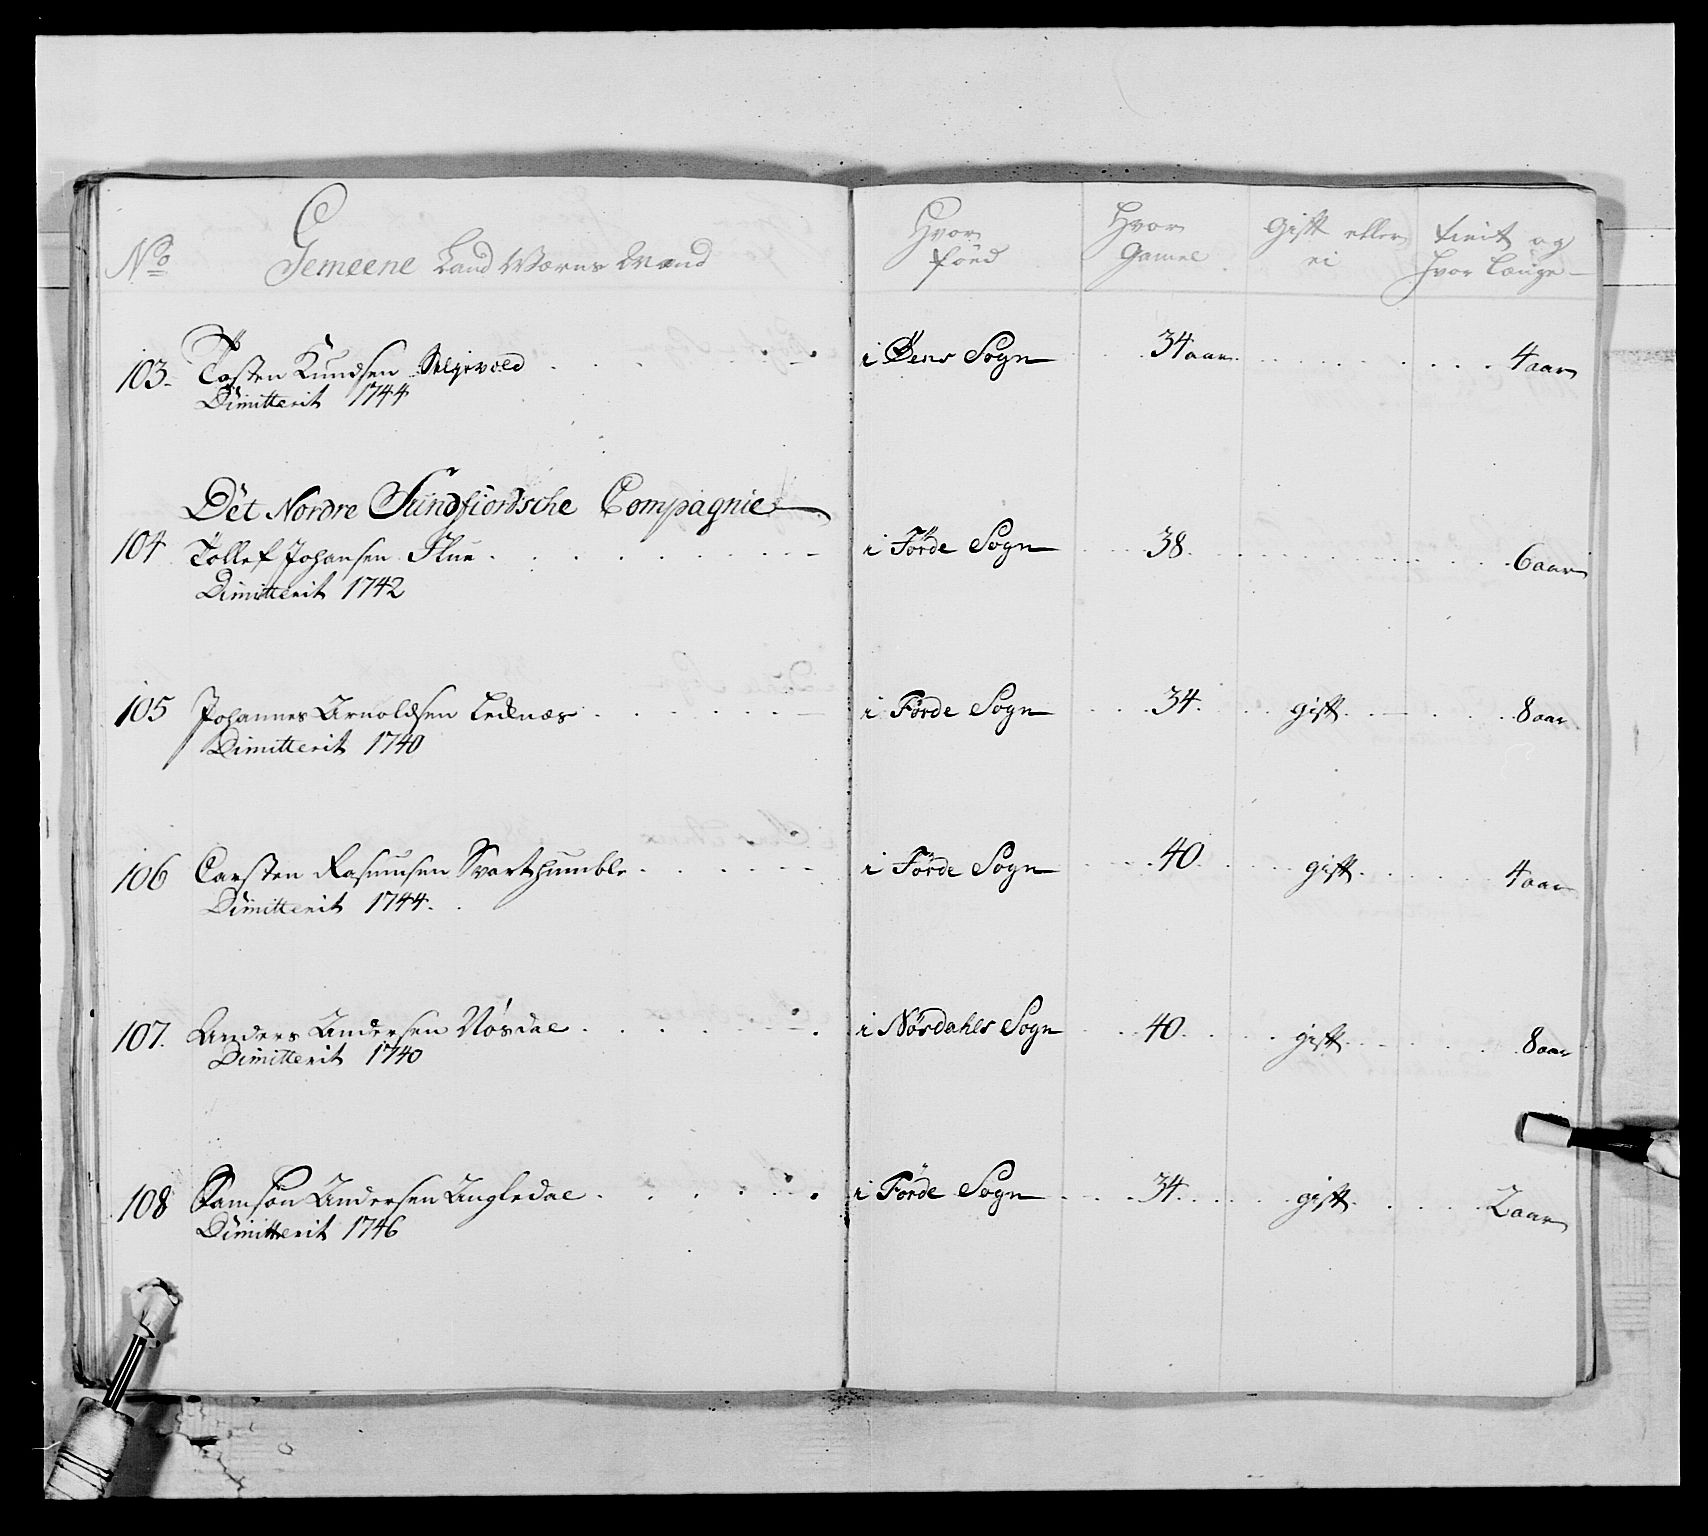 No Gemeene Land Wærns Mænd Hvor föed Hvor Gamel Gift eller ei tient og hvor længe
103. Tosten Knudsen Selgevold i Öens Sogn 34 aar 4 aar
Dimitterit 1744
Det Nordre Sundfiordsche Compagnie
104 Tollef Johansen Flue i Förde Sogn 38 6 aar
Dimitterit 1742
105 Johannes Arnoldsen Ledenæs i Förde Sogn 34 gift 8 aar
Dimitterit 1740
106 Carsten Rasmusen Svarthumble i Förde Sogn 40 gift 4 aar
Dimitterit 1744.
107. Anders Andersen Nósdal i Nósdahls Sogn 40 gift 8 aar
Dimitterit 1740
108 Samson Andersen Angledal i Förde Sogn 34 gift 2 aar
Dimitterit 1746